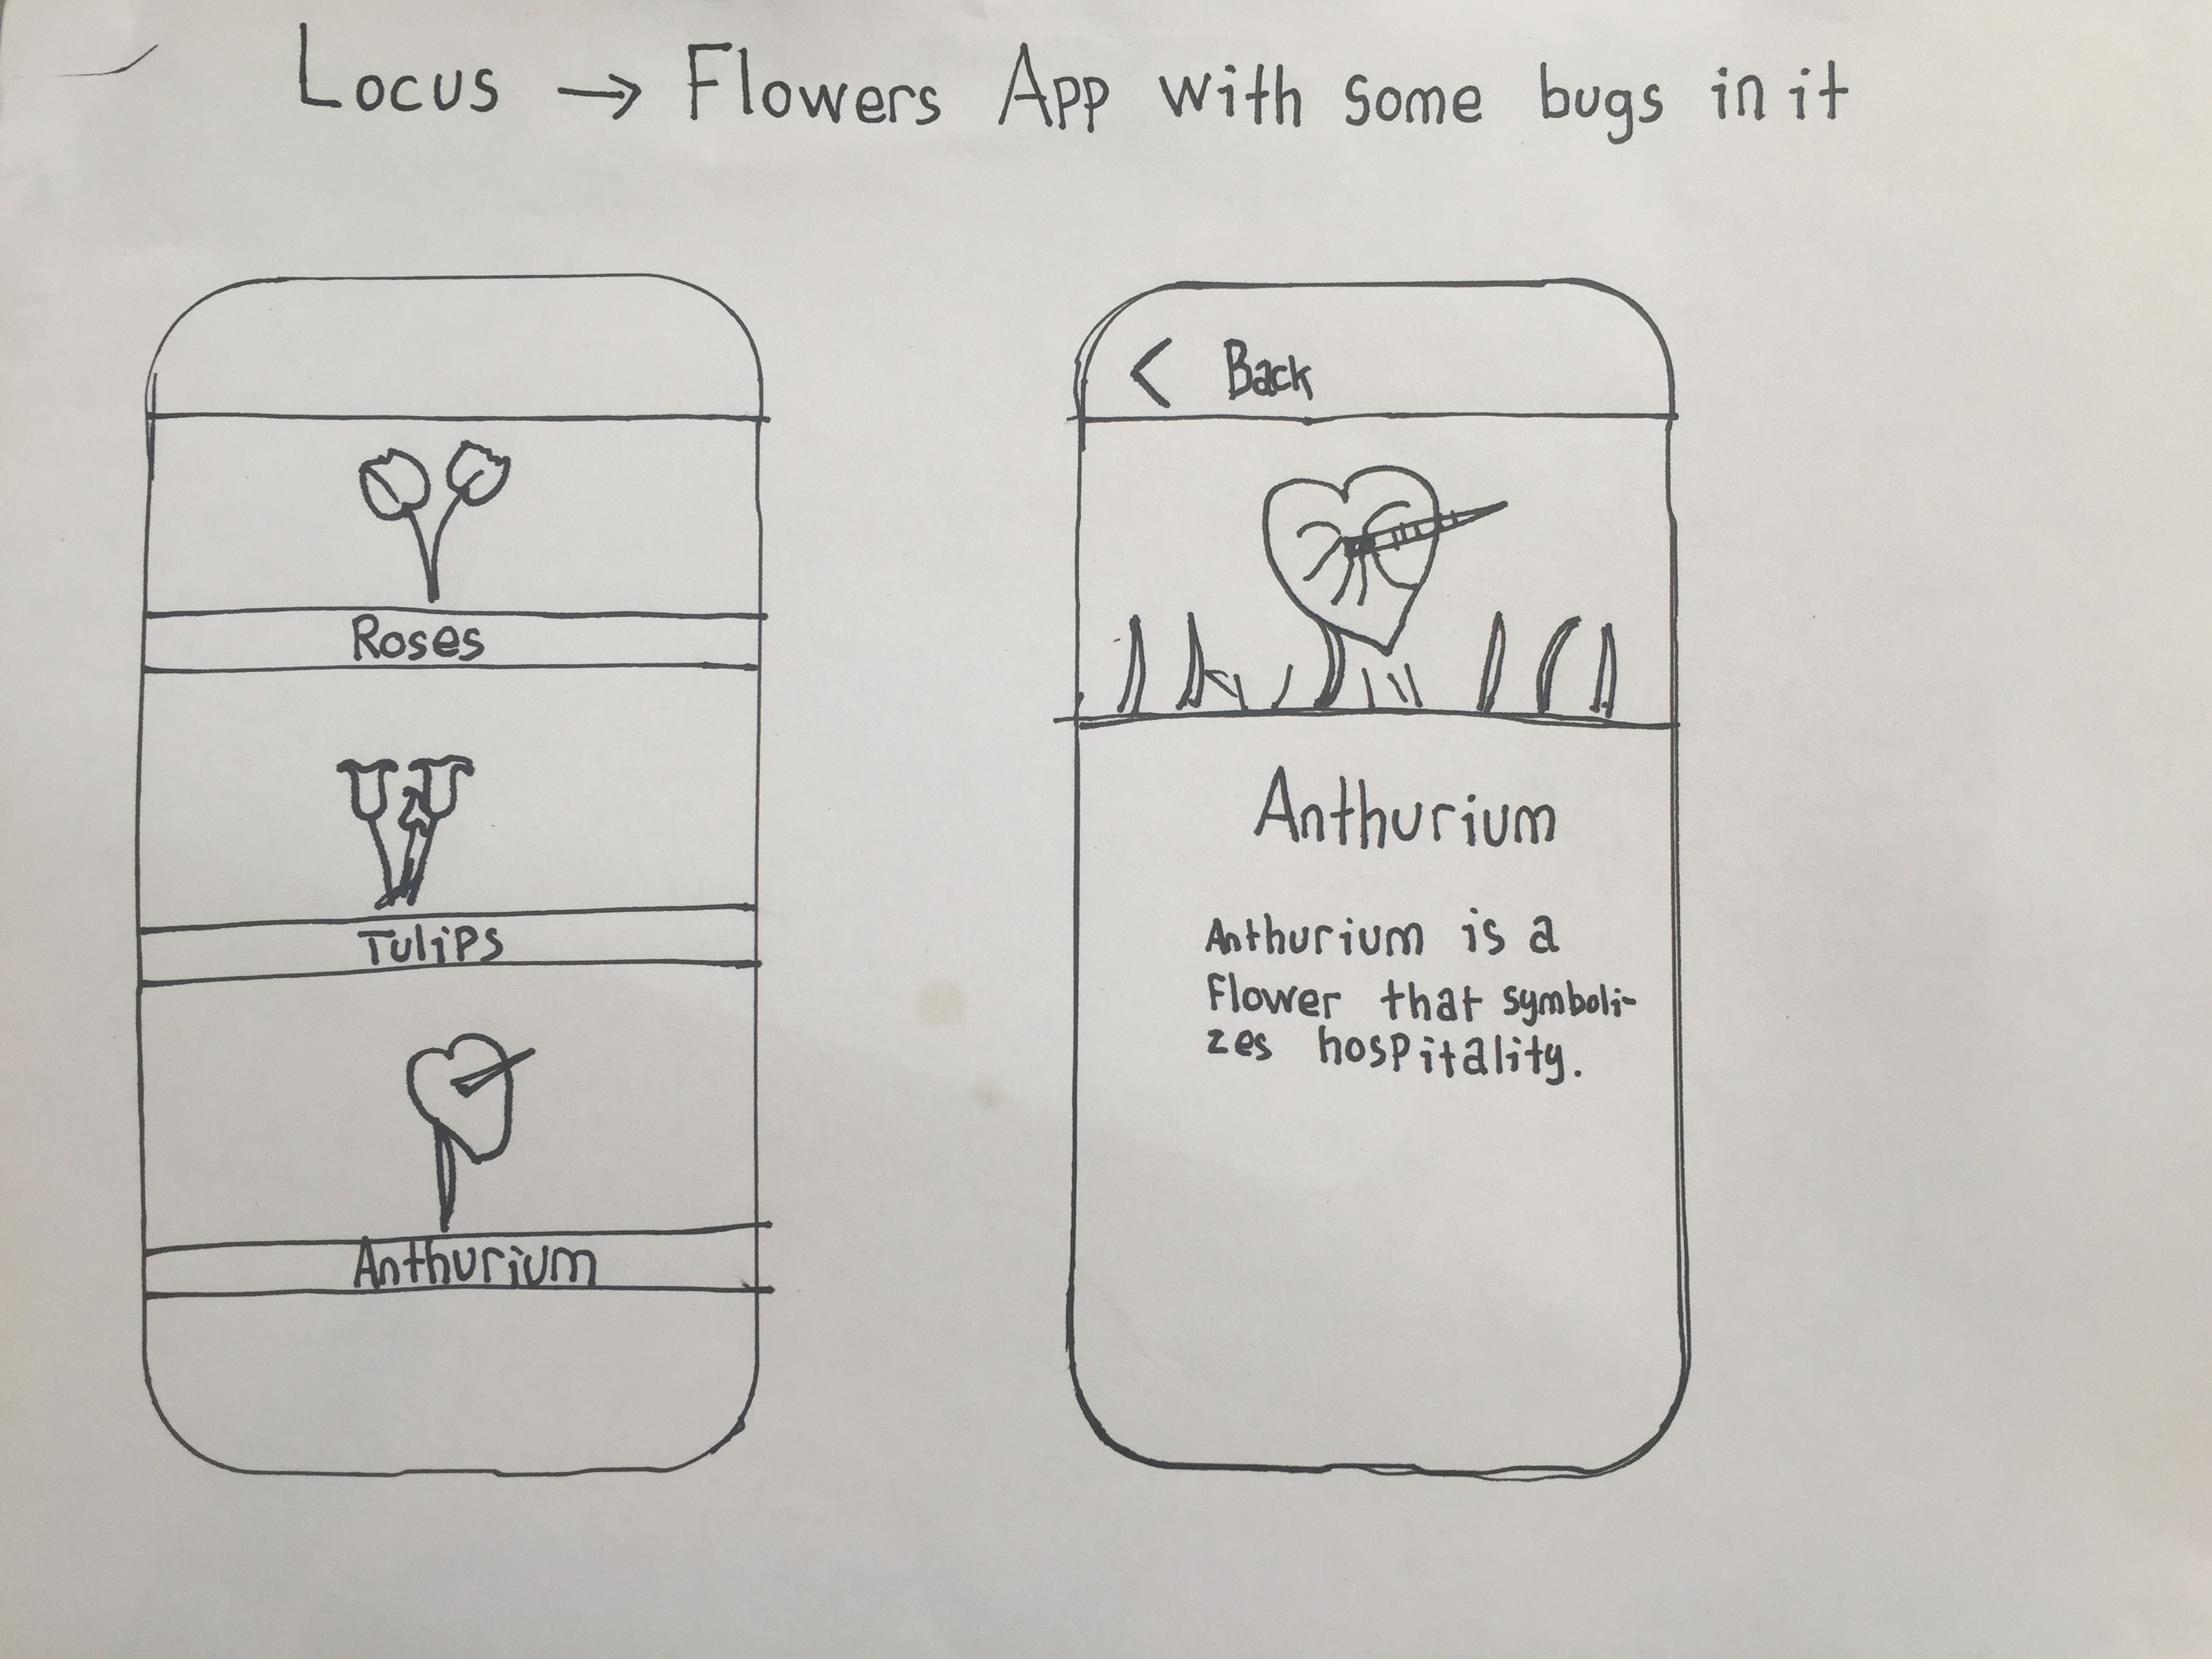 Locus → Flowers App with some bugs in it
Roses
Tulips
Anthurium
< Back
Anthurium
Anthurium is a
Flower that symboli-
zes hospitality.